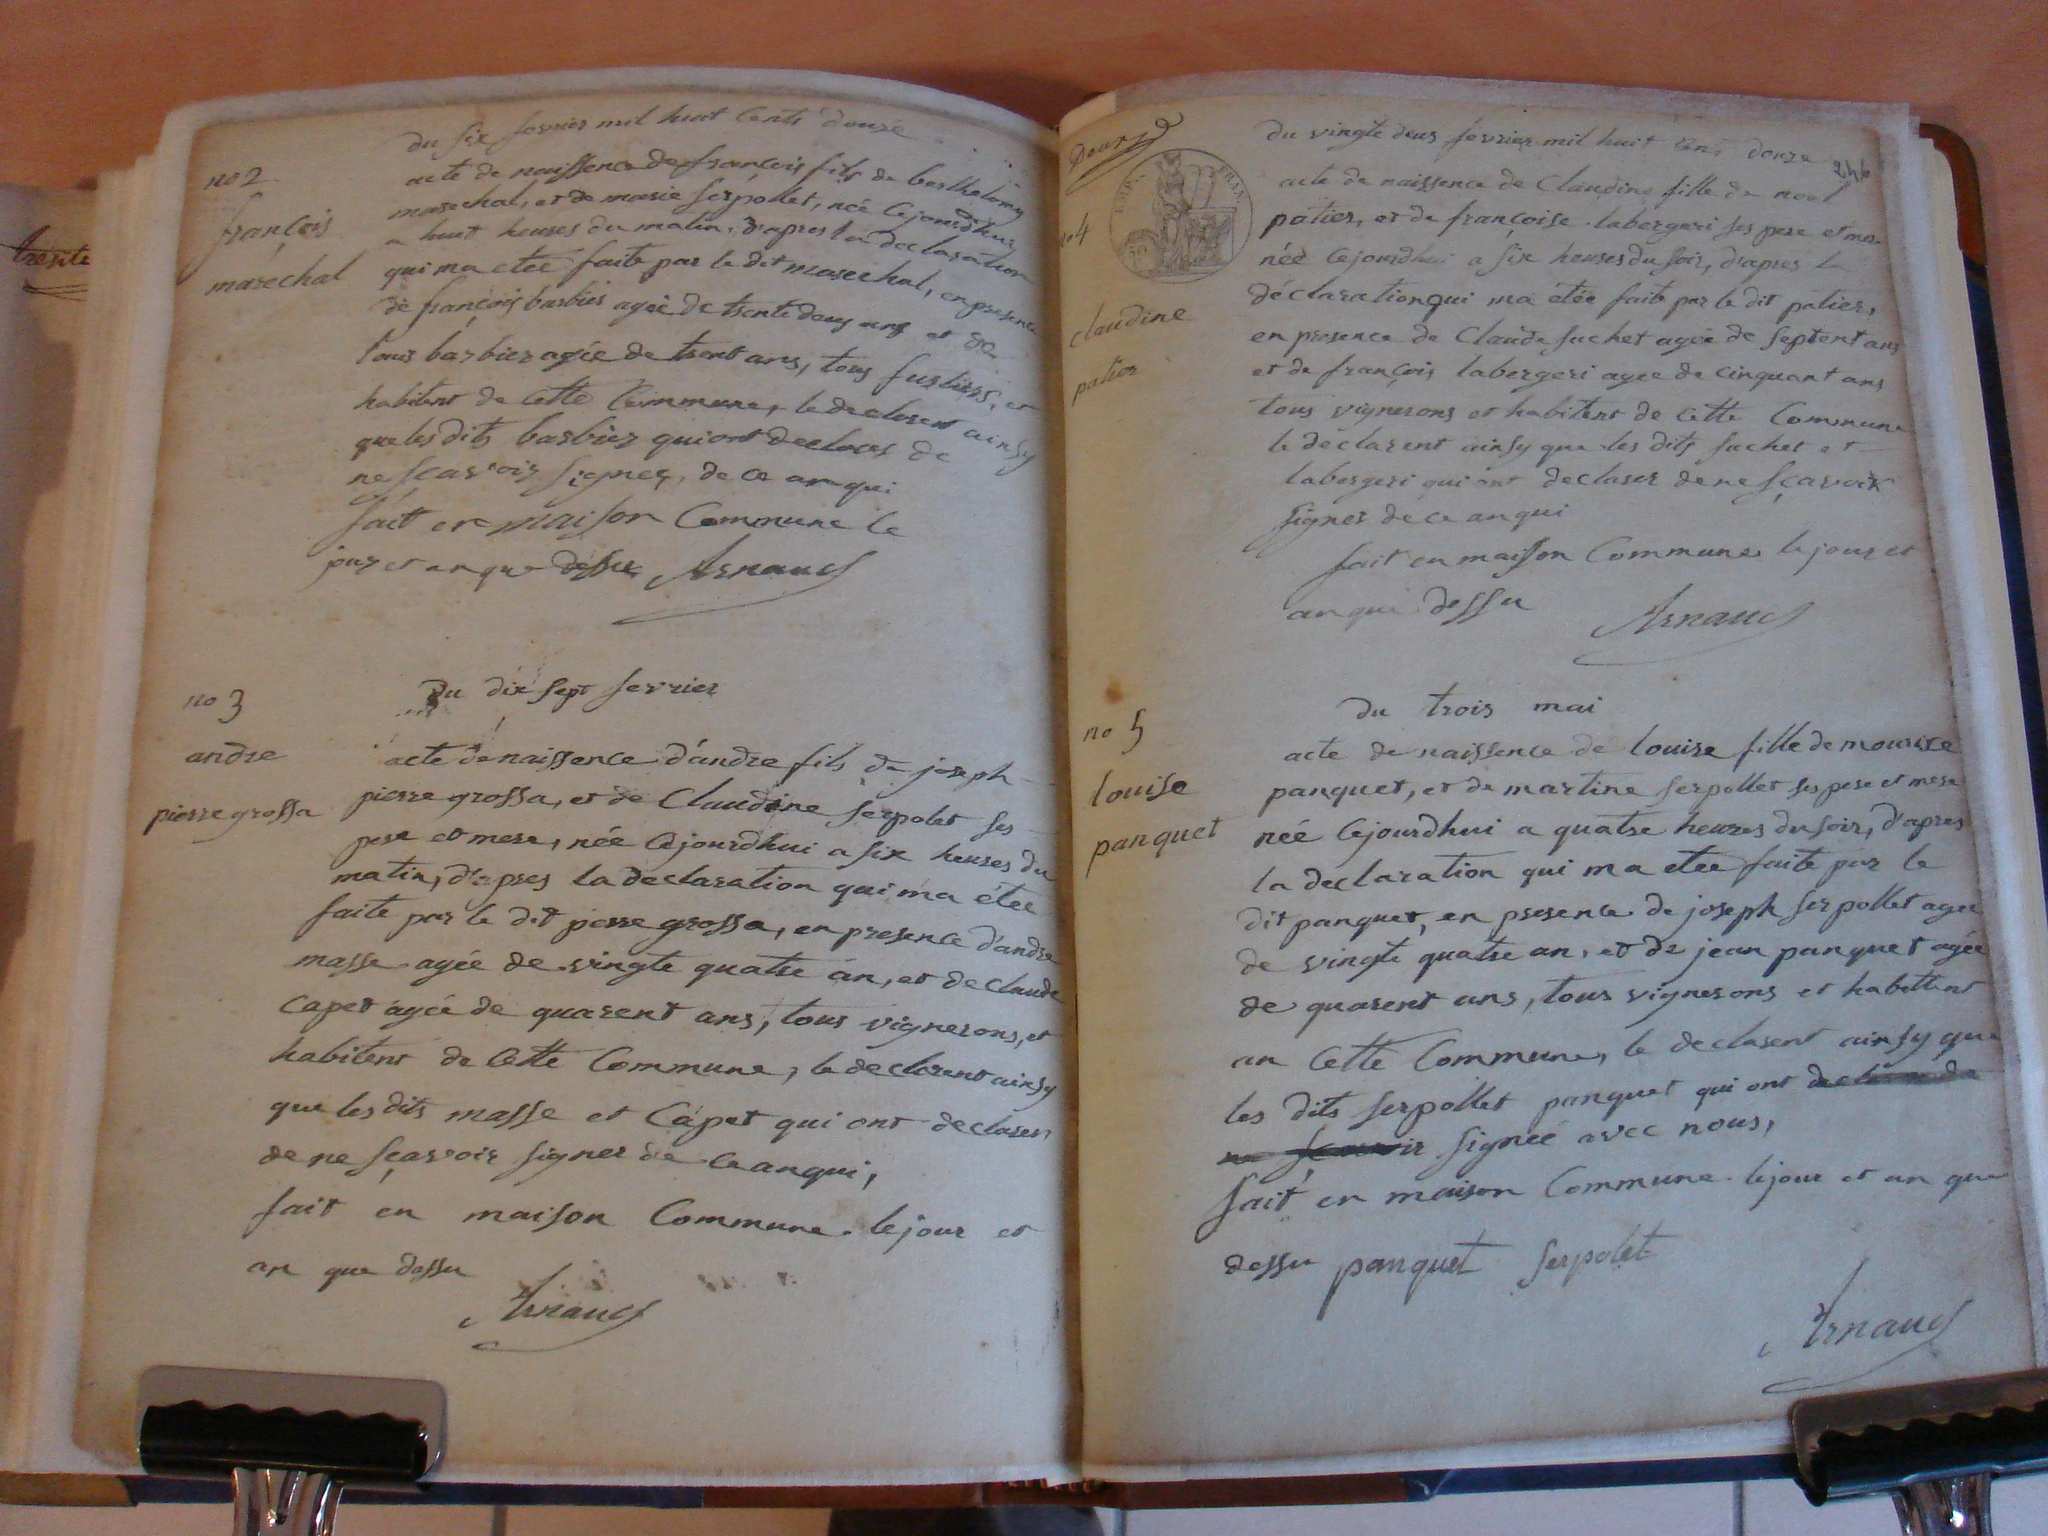 du six fevrier mil huit cents douze
no 2
acte de naissence de françois fils de barthelemy
françois
marechal, et de marie serpollet, née cejourdhuy
marechal
a huit heures du matin, d'apres la declaration
qui ma etée faite par le dit marechal, en presence
de françois barbier agée de trente deux ans et de
louis barbier agée de trent ans, tous fusliers, et
habitent de cette Commune, le declarent ainsy
que les dits barbier qui ont declarer de
ne sçavoir signer, de ce anqui
fait en maison Commune le
jour et an que dessu Arnaud
no 3
du dix sept fevrier
andre
acte de naissence d'andre fils de joseph
pierre grossa
pierre grossa, et de Claudine serpolet ses
pere et mere, née cejourdhui a six heures du
matin, d'apres la declaration qui ma étée
faite par le dit pierre grossa, en presence d'andre
masse agée de vingte quatre an, et de claude
Capet agée de quarent ans, tous vignerons, et
habitent de cette Commune, le declarent ainsy
que les dits masse et Capet qui ont declarer
de ne sçavoir signer de ce anqui,
fait en maison Commune le jour et
an que dessu
Arnaud
tresite
246
du vingte deus fevrier mil huit cens douze
no 4
acte de naissence de Claudine fille de noel
EMP. FRAN.
patier, et de françoise labergeri ses pere et mere
née cejourdhui a six heures du soir, d'apres la
claudine
déclaration qui ma étée faite par le dit patier,
patier
en presence de Claude suchet agée de septent ans
et de françois labergeri agee de cinquant ans
tous vignerons et habitent de cette Commune
le déclarent ainsy que les dits suchet et
labergeri qui ont declarer de ne sçavoir
signer de ce anqui
fait en maison Commune le jour et
an qui dessu Arnaud
du trois mai
no 5
acte de naissence de louise fille de mourise
louise
panquet, et de martine serpollet ses pere et mere
panquet
née cejourdhui a quatre heures du soir, d'apres
la declaration qui ma etée faite par le
dit panquet, en presence de joseph serpollet agee
de vingte quatre an, et de jean panquet agée
de quarent ans, tous vignerons et habittent
an cette Commune, le declarent ainsy que
les dits serpollet panquet qui ont declarer de
ne sçavoir signeé avec nous,
fait en maison Commune le jour et an que
dessu panquet serpolet
Arnaud